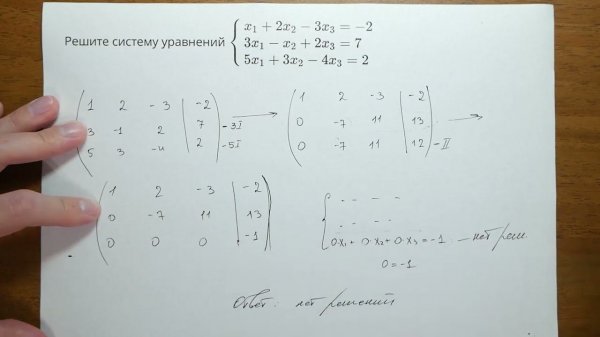 Решите систему уравнений { x₁ + 2x₂ − 3x₃ = −2
3x₁ − x₂ + 2x₃ = 7
5x₁ + 3x₂ − 4x₃ = 2
( 1 2 -3 | -2
3 -1 2 | 7 ) -3I
5 3 -4 | 2 -5I →
( 1 2 -3 | -2
0 -7 11 | 13 )
0 -7 11 | 12 -II →
( 1 2 -3 | -2
0 -7 11 | 13 )
0 0 0 | -1
{ - - - -
- - - -
0·x₁ + 0·x₂ + 0·x₃ = -1 — нет реш.
0 = -1
Ответ: нет решений